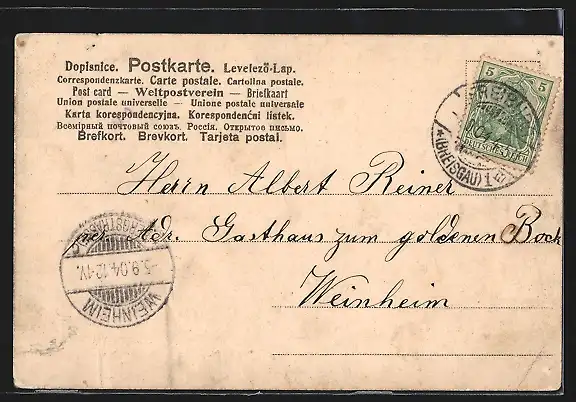 Dopisnice. Postkarte. Levelező-Lap.
Correspondenzkarte. Carte postale. Cartolina postale.
Post card — Weltpostverein — Briefkaart
Union postale universelle — Unione postale universale
Karta korespondencyjna. Korespondenční lístek.
Всемірный почтовый союзъ. Россія. Открытое письмо.
Brefkort. Brevkort. Tarjeta postal.
5 5
FREIBURG
(BREISGAU) 1
Herrn Albert Reiner
Adr. Gasthaus zum goldenen Bock
Weinheim
-5.9.04.12-1V.
WEINHEIM